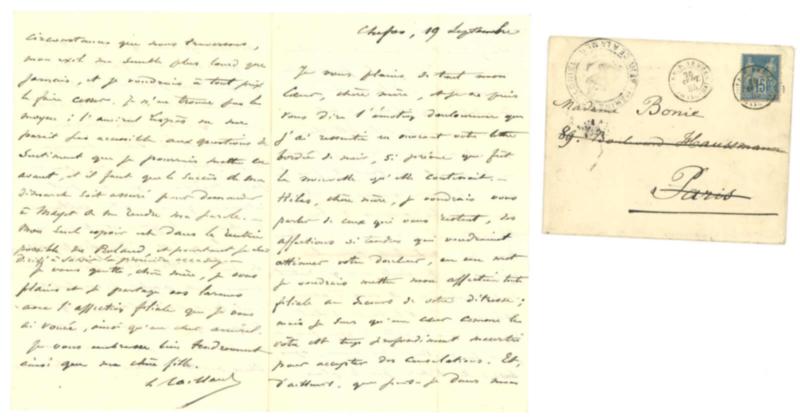 Chefoo, 19 Septembre
Je vous plains de tout mon
Cœur, chère mère, et je ne puis
vous dire l'émotion douloureuse que
j'ai ressentie en ouvrant votre lettre
bordée de noir, si prévue que fût
la nouvelle qu'elle contenait. —
Hélas, chère mère, je voudrais vous
parler de ceux qui vous restent, des
affections si tendres qui voudraient
atténuer votre douleur, en un mot
je voudrais mettre mon affection toute
filiale au secours de votre détresse ;
mais je sens qu'un cœur comme le
vôtre est trop profondément meurtri
pour accepter des consolations. Et,
d'ailleurs, que puis-je dans mon
circonstances que nous traversons,
mon exil me semble plus lourd que
jamais, et je voudrais à tout prix
le faire cesser. Je n'en trouve pas le
moyen ; l'amiral Lespès ne me
paraît pas accessible aux questions de
Sentiment que je pourrais mettre en
avant, et il faut que le succès de ma
démarche soit assuré pour demander
à Mayet de me rendre ma parole. —
Mon seul espoir est dans la rentrée
possible de Roland, et pourtant je
à saisir la première occasion —
Je vous quitte, chère mère, je vous
plains et je partage vos larmes
avec l'affection filiale que je vous
ai vouée, ainsi qu'au cher amiral.
Je vous embrasse bien tendrement
ainsi que ma chère fille.
L. Caillaud
15
Madame Bonie
89. Boulevard Haussmann
Paris